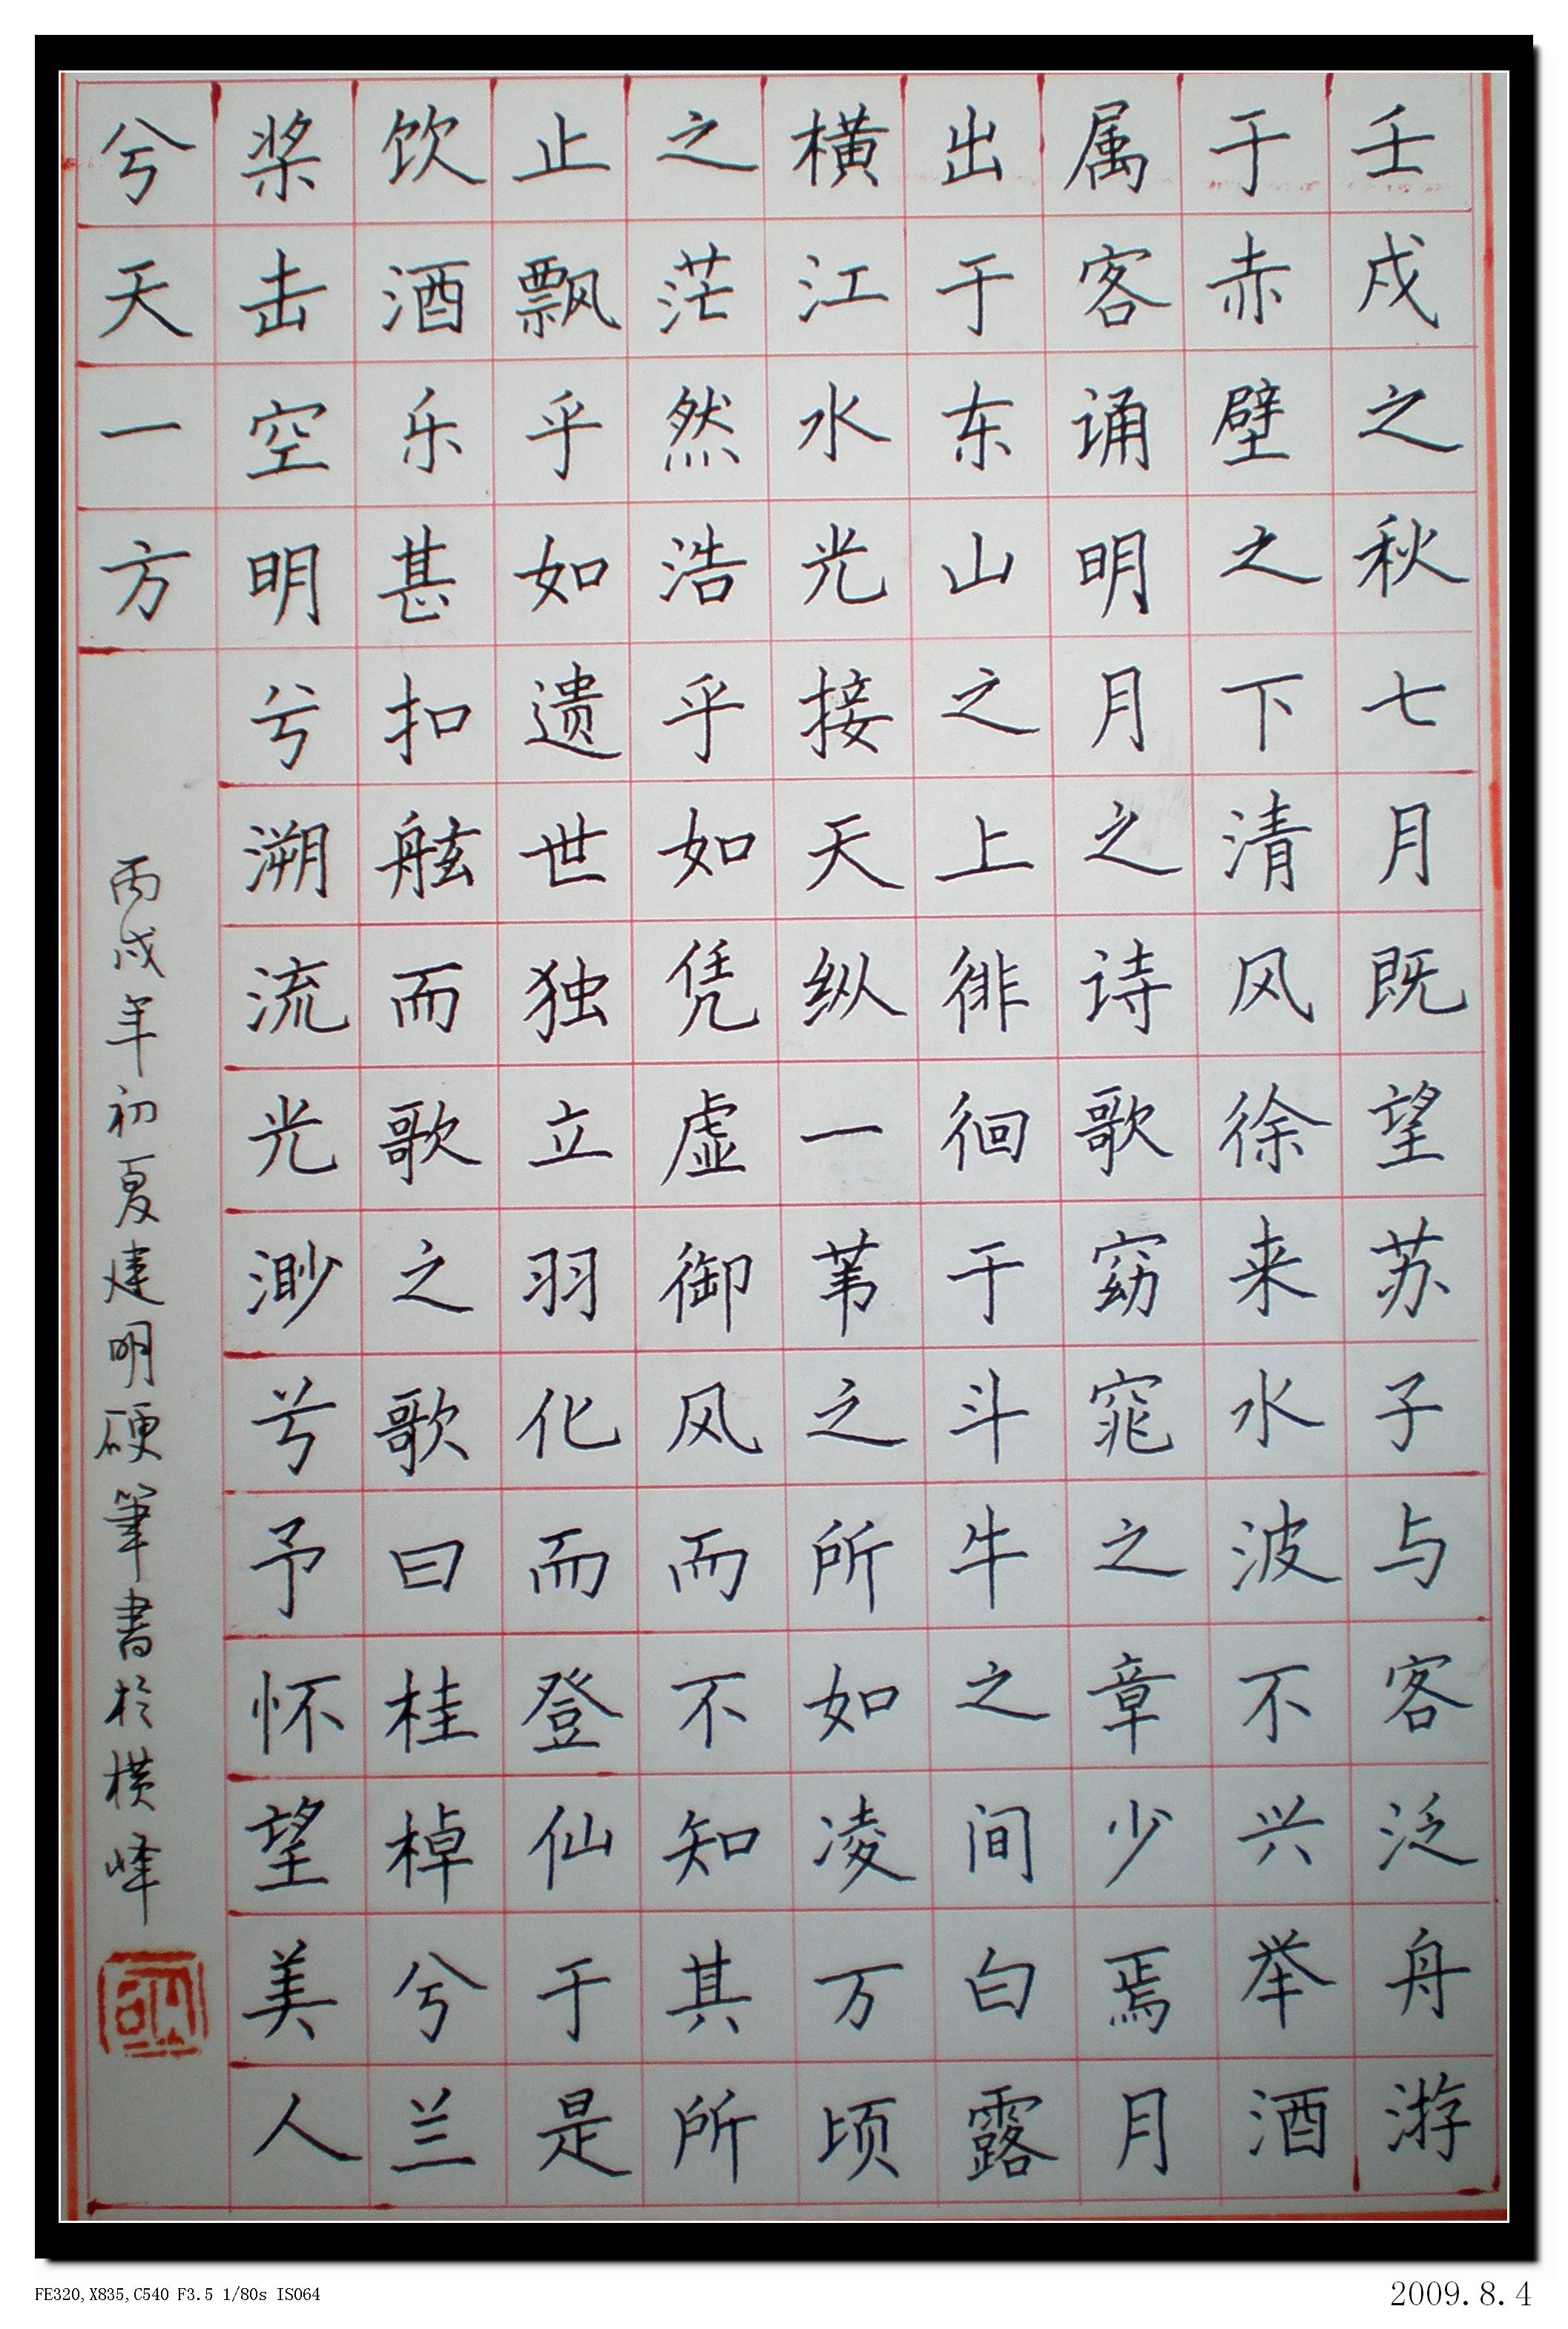 壬戌之秋七月既望苏子与客泛舟游
于赤壁之下清风徐来水波不兴举酒
属客诵明月之诗歌窈窕之章少焉月
出于东山之上徘徊于斗牛之间白露
横江水光接天纵一苇之所如凌万顷
之茫然浩乎如凭虚御风而不知其所
止飘乎如遗世独立羽化而登仙于是
饮酒乐甚扣舷而歌之歌曰桂棹兮兰
桨击空明兮溯流光渺兮予怀望美人
兮天一方
丙戌年初夏建明硬筆書於横峰
FE320,X835,C540 F3.5 1/80s ISO64
2009.8.4